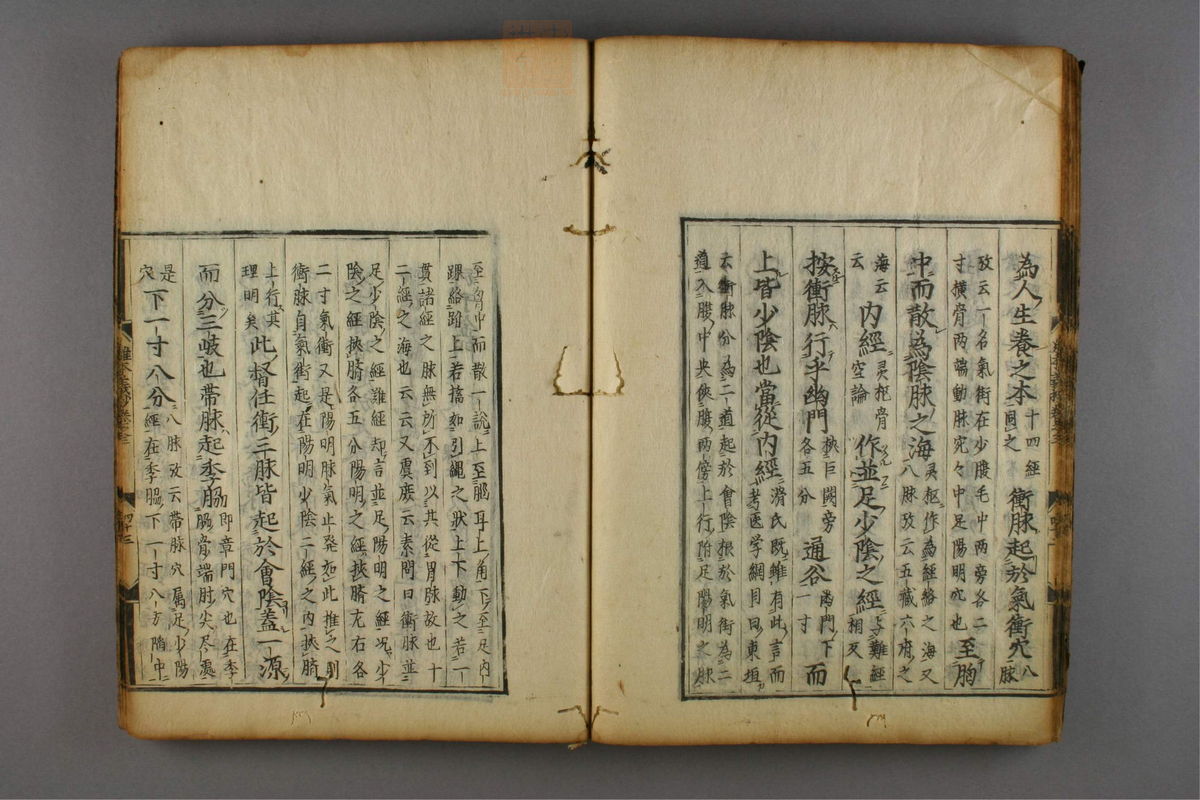 為人生養之本 十四經
同之 衝脉起於氣衝穴 八脉
攷云一名氣街在少腹毛中兩旁各二
寸橫骨兩端動脉宛々中足陽明穴也 至胸
中而散為陰脉之海 灵枢作為經絡之海又
八脉攷云五臟六府之
海云
云 内經 灵枢骨
空論 作並足少陰之經 与難經
相反
按衝脉行乎幽門 挾巨闕旁
各五分 通谷 幽門下
一寸 而
上皆少陰也當從内經 滑氏既雖有此言而
考医学綱目曰東垣
云衝脉分為二道起於會陰根於氣街為二
道入腹中央俠腹兩傍上行附足陽明之脉
至胷中而散一說上至腦耳上角下至足内
踝絡跗上若擣如引繩之狀上下動之若一
貫諸經之脉無所不到以其從胃脉故也十
二經之海也云云又虞庶云素問曰衝脉並
足少陰之經難經却言並足陽明之經况少
陰之經挾臍各五分陽明之經挾臍左右各
二寸氣衝又是陽明脉氣止発如此推之則
衝脉自氣衝起在陽明少陰二經之内挾臍
上行其
理明矣 此督任衝三脉皆起於會陰蓋一源
而分三歧也帶脉起季脇 即章門穴也在季
脇骨端肘尖尽處
是
穴 下一寸八分 八脉攷云帶脉穴属足少陽
經在季脇下一寸八方陷中